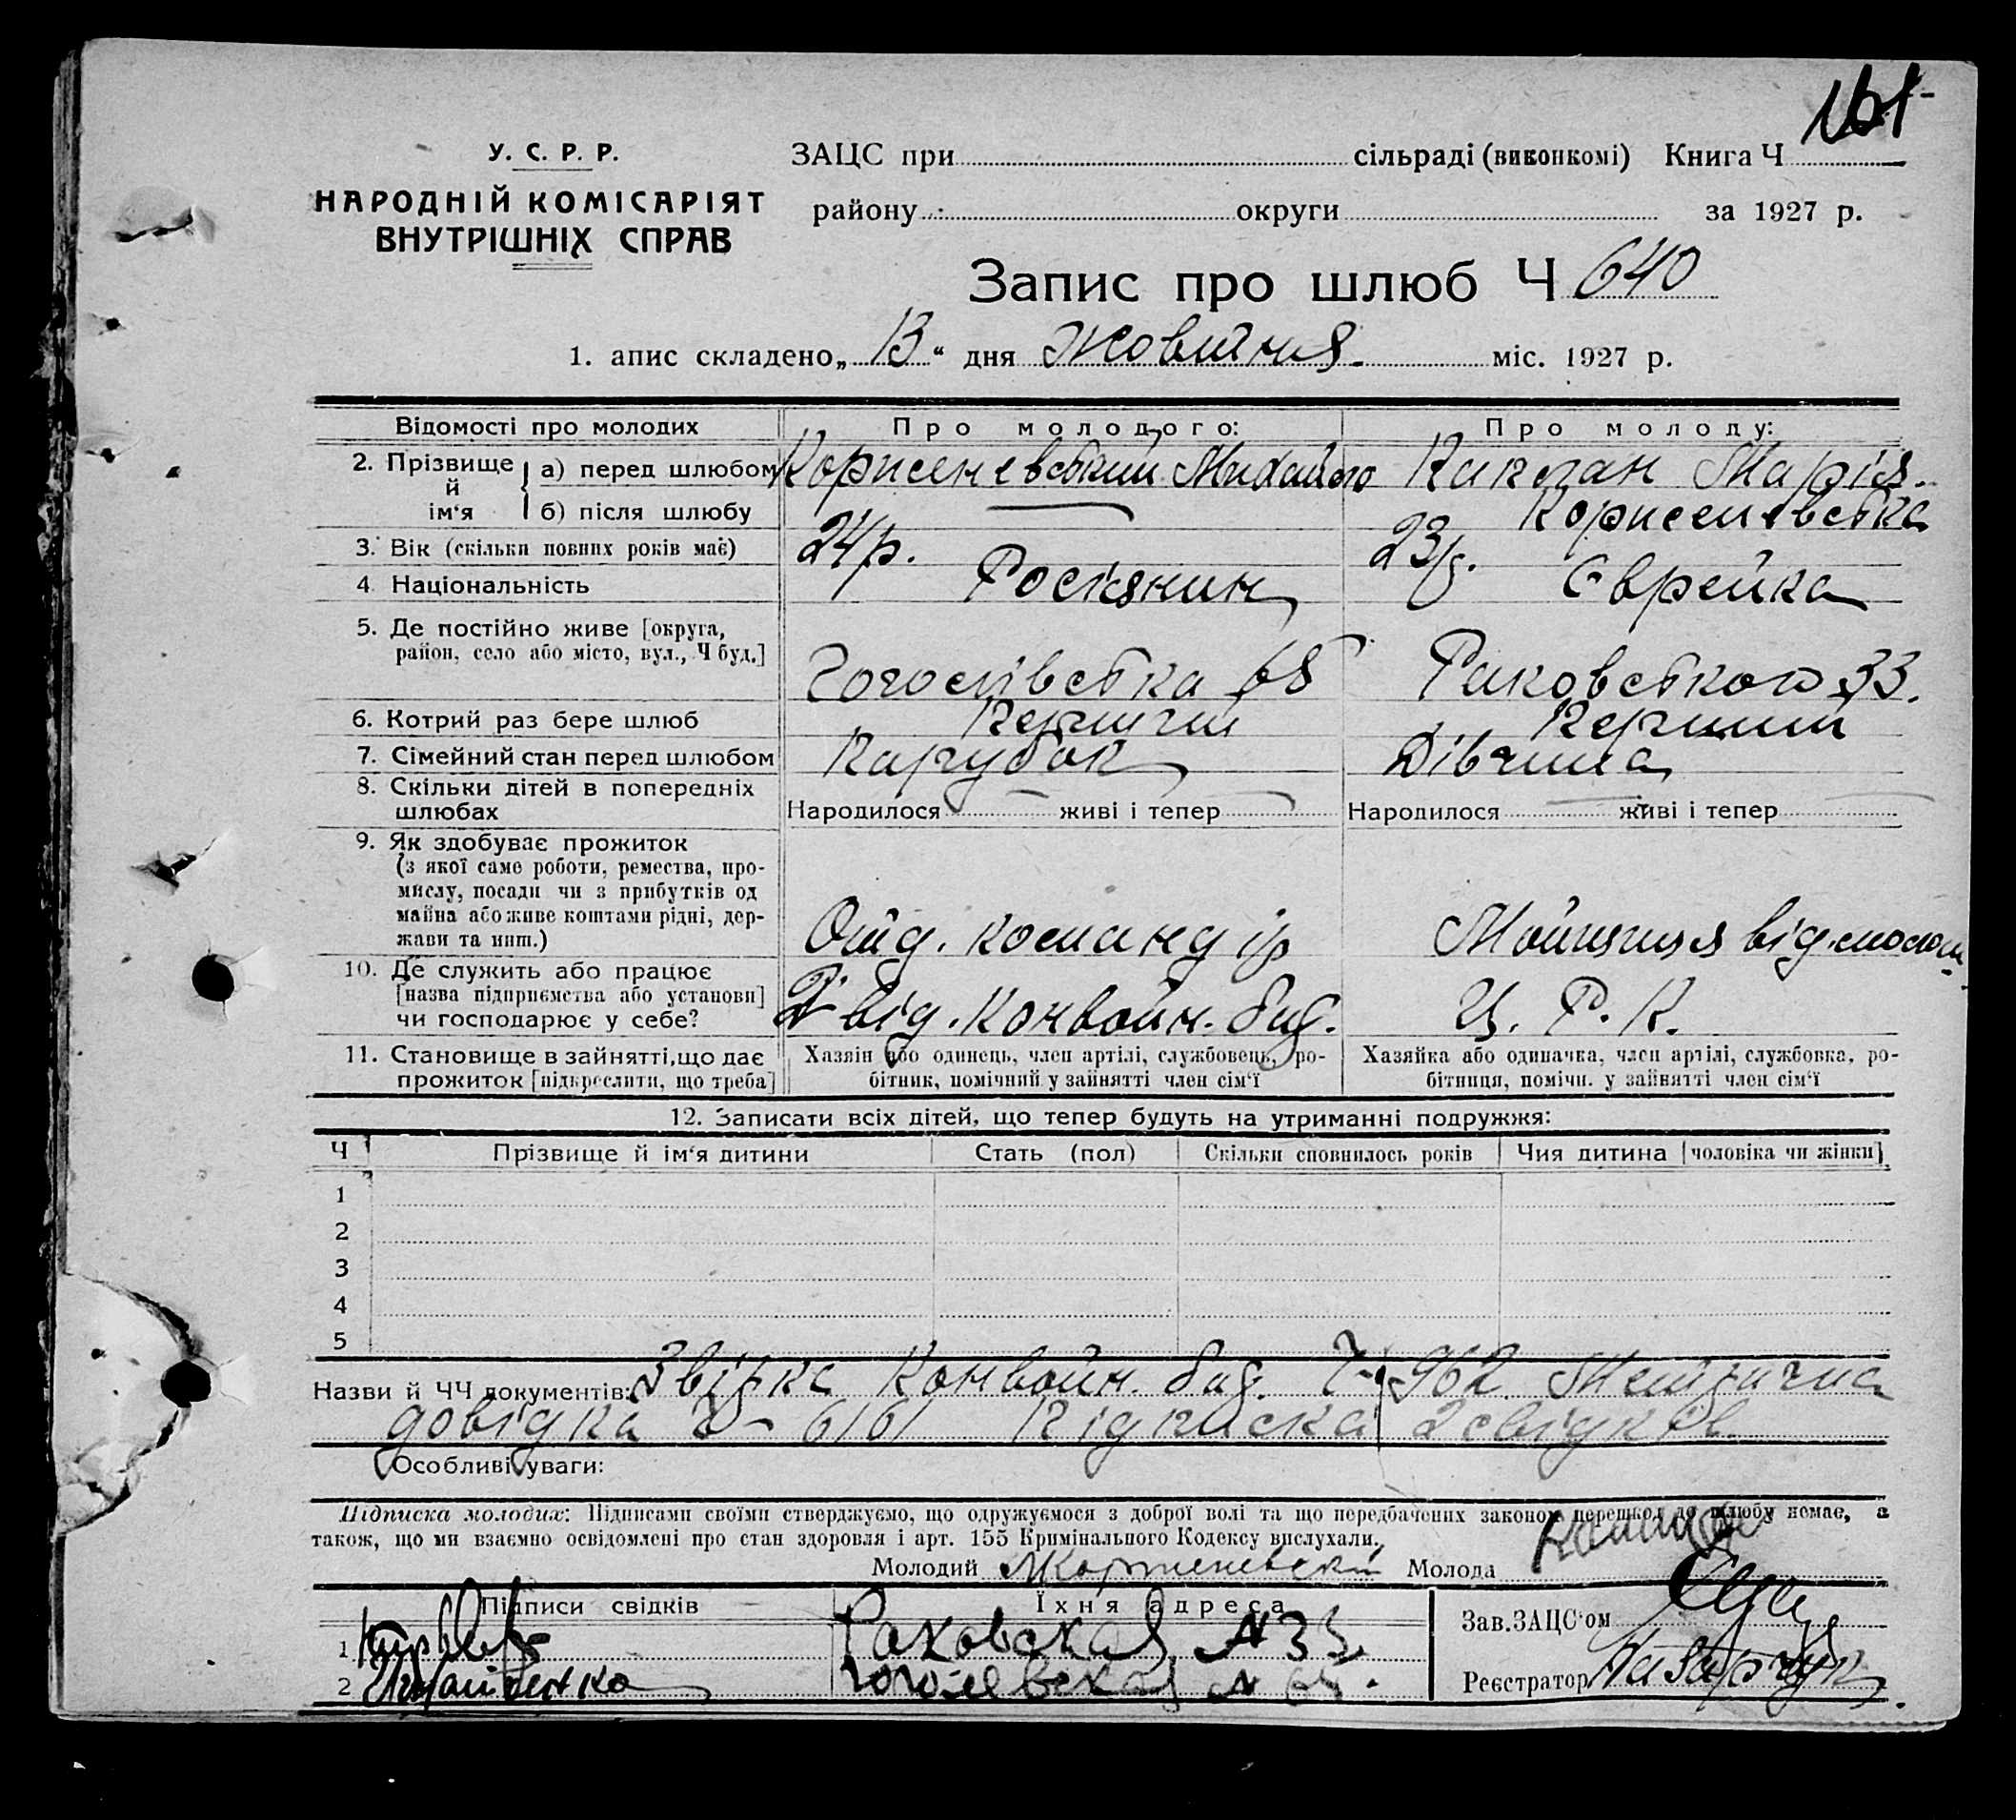 161
У. С. Р. Р.
НАРОДНІЙ КОМІСАРІЯТ
ВНУТРІШНІХ СПРАВ
ЗАЦС при сільраді (виконкомі) Книга Ч
району округи за 1927 р.
Запис про шлюб Ч 640
1. апис складено „13“ дня Жовтня міс. 1927 р.
Відомості про молодих Про молодого: Про молоду:
2. Прізвище й ім‘я а) перед шлюбом Михайло Каплан Марія
б) після шлюбу —
3. Вік (скільки повних років має) 24 р. 23 р.
4. Національність Росіянин Єврейка
5. Де постійно живе [округа,
район, село або місто, вул., Ч буд.]
Гоголівська 68 Раковського 33.
6. Котрий раз бере шлюб Перший Перший
7. Сімейний стан перед шлюбом Парубок Дівчина
8. Скільки дітей в попередніх
шлюбах Народилося — живі і тепер — Народилося — живі і тепер —
9. Як здобуває прожиток
(з якої саме роботи, ремества, про-
мислу, посади чи з прибутків од
майна або живе коштами рідні, дер-
жави та инш.) Отд. командір від.
10. Де служить або працює
[назва підприємства або установи]
чи господарює у себе? 2 від. Конвойн. Ц. Р. К.
11. Становище в зайнятті, що дає
прожиток [підкреслити, що треба]
Хазяїн або одинець, член артілі, службовець, ро-
бітник, помічний у зайнятті член сім‘ї
Хазяйка або одиначка, член артілі, службовка, ро-
бітниця, помічн. у зайнятті член сім‘ї
12. Записати всіх дітей, що тепер будуть на утриманні подружжя:
Ч Прізвище й ім‘я дитини Стать (пол) Скільки сповнилось років Чия дитина [чоловіка чи жінки]
1
2
3
4
5
Назви й ЧЧ документів: Конвойн. 962 Метрична
довідка Ч 6161 Підписка 2 свідків.
Особливі уваги:
Підписка молодих: Підписами своїми стверджуємо, що одружуємося з доброї волі та що передбачених законом перешкод до шлюбу немає, а
також, що ми взаємно освідомлені про стан здоровля і арт. 155 Кримінального Кодексу вислухали.
Молодий Молода
Підписи свідків Їхня адреса
1 Раковская N 33
2 Гоголевская N
Зав. ЗАЦС‘ом
Реєстратор Назарчук